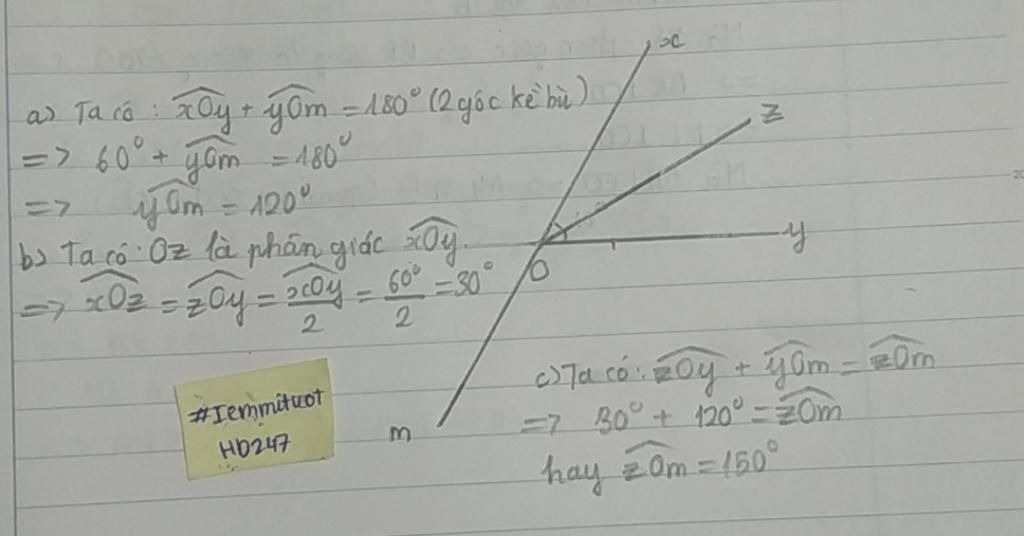 a) Ta có: xOy + yOm = 180° (2 góc kề bù)
=> 60° + yOm = 180°
=> yOm = 120°
b) Ta có: Oz là phân giác xOy.
=> xOz = zOy = xOy/2 = 60°/2 = 30°
x
z
y
O
m
c) Ta có: zOy + yOm = zOm
=> 30° + 120° = zOm
hay zOm = 150°
#Iemmituot
HD247